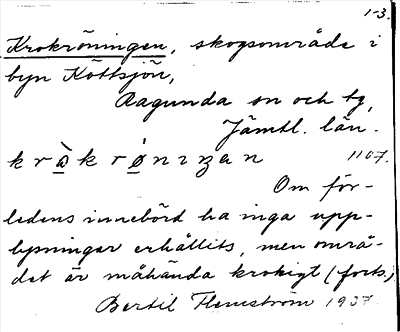 1-3.
Krokröningen, skogsområde i
byn Köttsjön,
Ragunda sn och tg,
Jämtl. län.
kràkrøniŋan 1107.
Om för-
ledens innebörd ha inga upp-
lysningar erhållits, men områ-
det är måhända krokigt (forts.)
Bertil Flemström 1937.